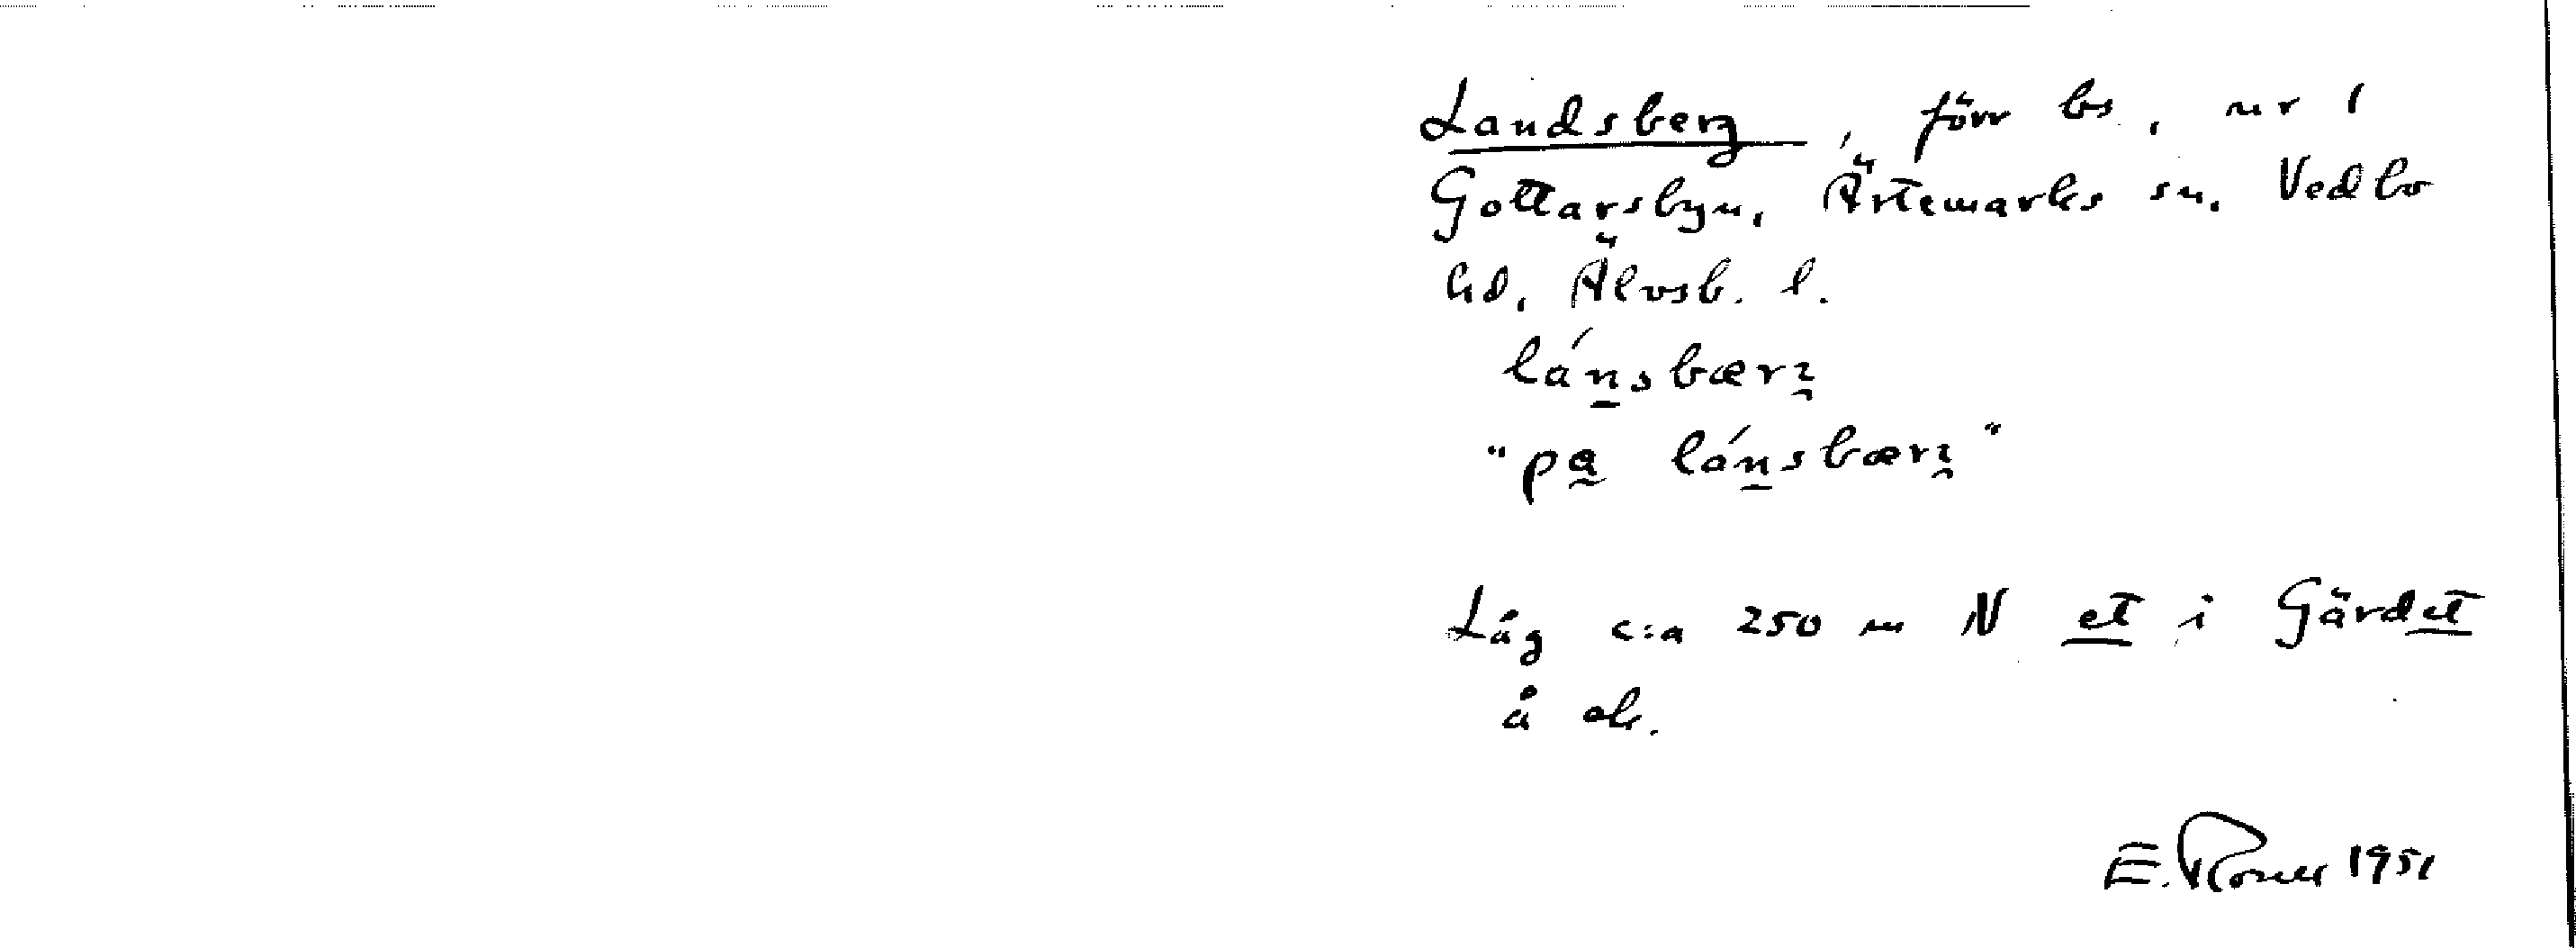 Landsberg, förr bs, nr 1
Gottarsbyn, Ärtemarks sn, Vedbo
hd, Älvsb. l.
lánsbærȷ
"pa lánsbærȷ"
Låg c:a 250 m N et i Gärdet
å ek.
E. 1951